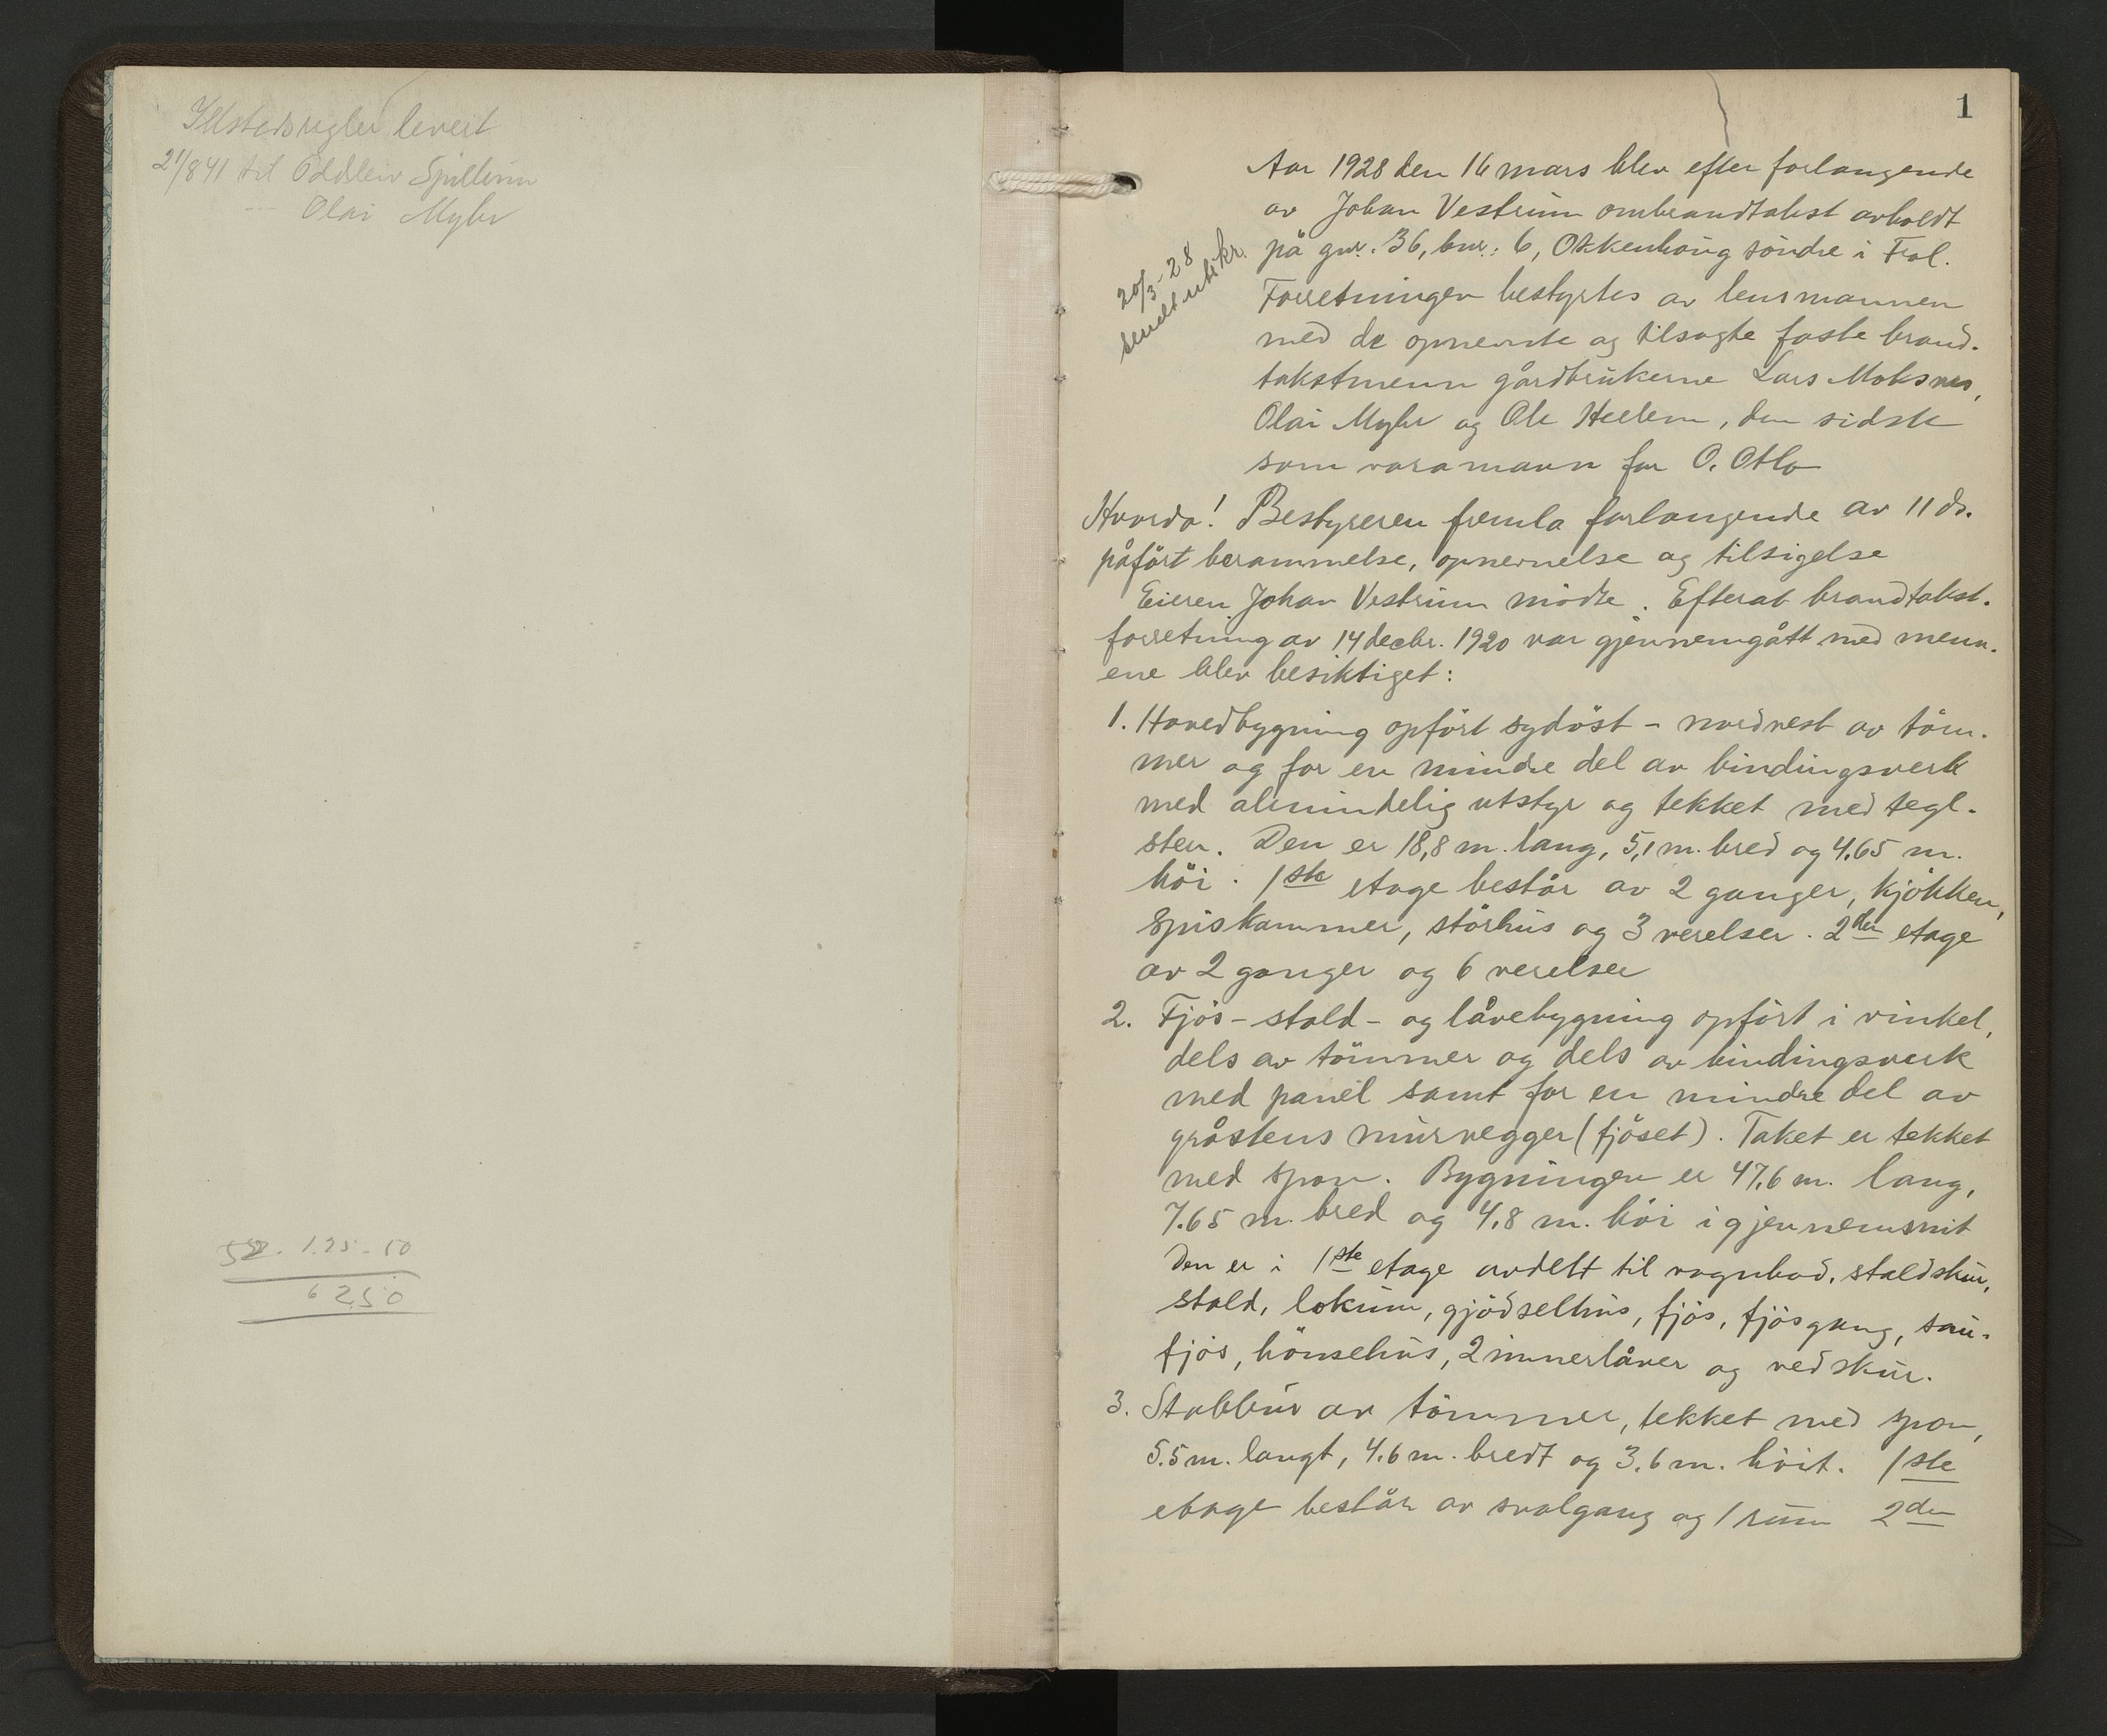 Ildstedsregler levert
21/8 41 til Oddleiv Spillum
— Olai Myhr
52. 1.25 - 50
6250
1
20/3-28
sendt utskr.
Aar 1928 den 16 mars blev efter forlangende
av Johan Vestrum ombrandtakst avholdt
på gnr. 36, bnr.: 6, Okkenhaug söndre i Frol.
Forretningen bestyrtes av lensmannen
med de opnevnte og tilsagte faste brand-
takstmenn gårdbrukerne Lars Moksnes,
Olai Myhr og Ole Heelem, den sidste
som varamann for O. Otlo
Hvorda! Bestyreren fremla forlangende av 11 ds.
påfört berammelse, opnevnelse og tilsigelse
Eieren Johan Vestrum mödte. Efterat brandtakst-
forretning av 14 decbr. 1920 var gjennemgått med menn-
ene blev besiktiget:
1. Hovedbygning opfört sydöst - nordvest av töm-
mer og for en mindre del av bindingsverk
med almindelig utstyr og tekket med tegl-
sten. Den er 18,8 m. lang, 5,1 m. bred og 4.65 m.
höi. 1ste etage består av 2 ganger, kjökken,
spiskammer, störhus og 3 verelser. 2den etage
av 2 ganger og 6 verelser
2. Fjös- stald- og låvebygning opfört i vinkel,
dels av tömmer og dels av bindingsverk
med panel samt for en mindre del av
gråstens murvegger (fjöset). Taket er tekket
med spon. Bygningen er 47,6 m. lang,
7.65 m. bred og 4,8 m. höi i gjennemsnit
Den er i 1ste etage avdelt til vognbod, staldskur,
stald, lokum, gjödselhus, fjös, fjösgang, sau-
fjös, hönsehus, 2 innerlåver og vedskur.
3. Stabbur av tömmer, tekket med spon,
5.5 m. langt, 4.6 m. bredt og 3.6 m. höit. 1ste
etage består av svalgang og 1 rum 2den